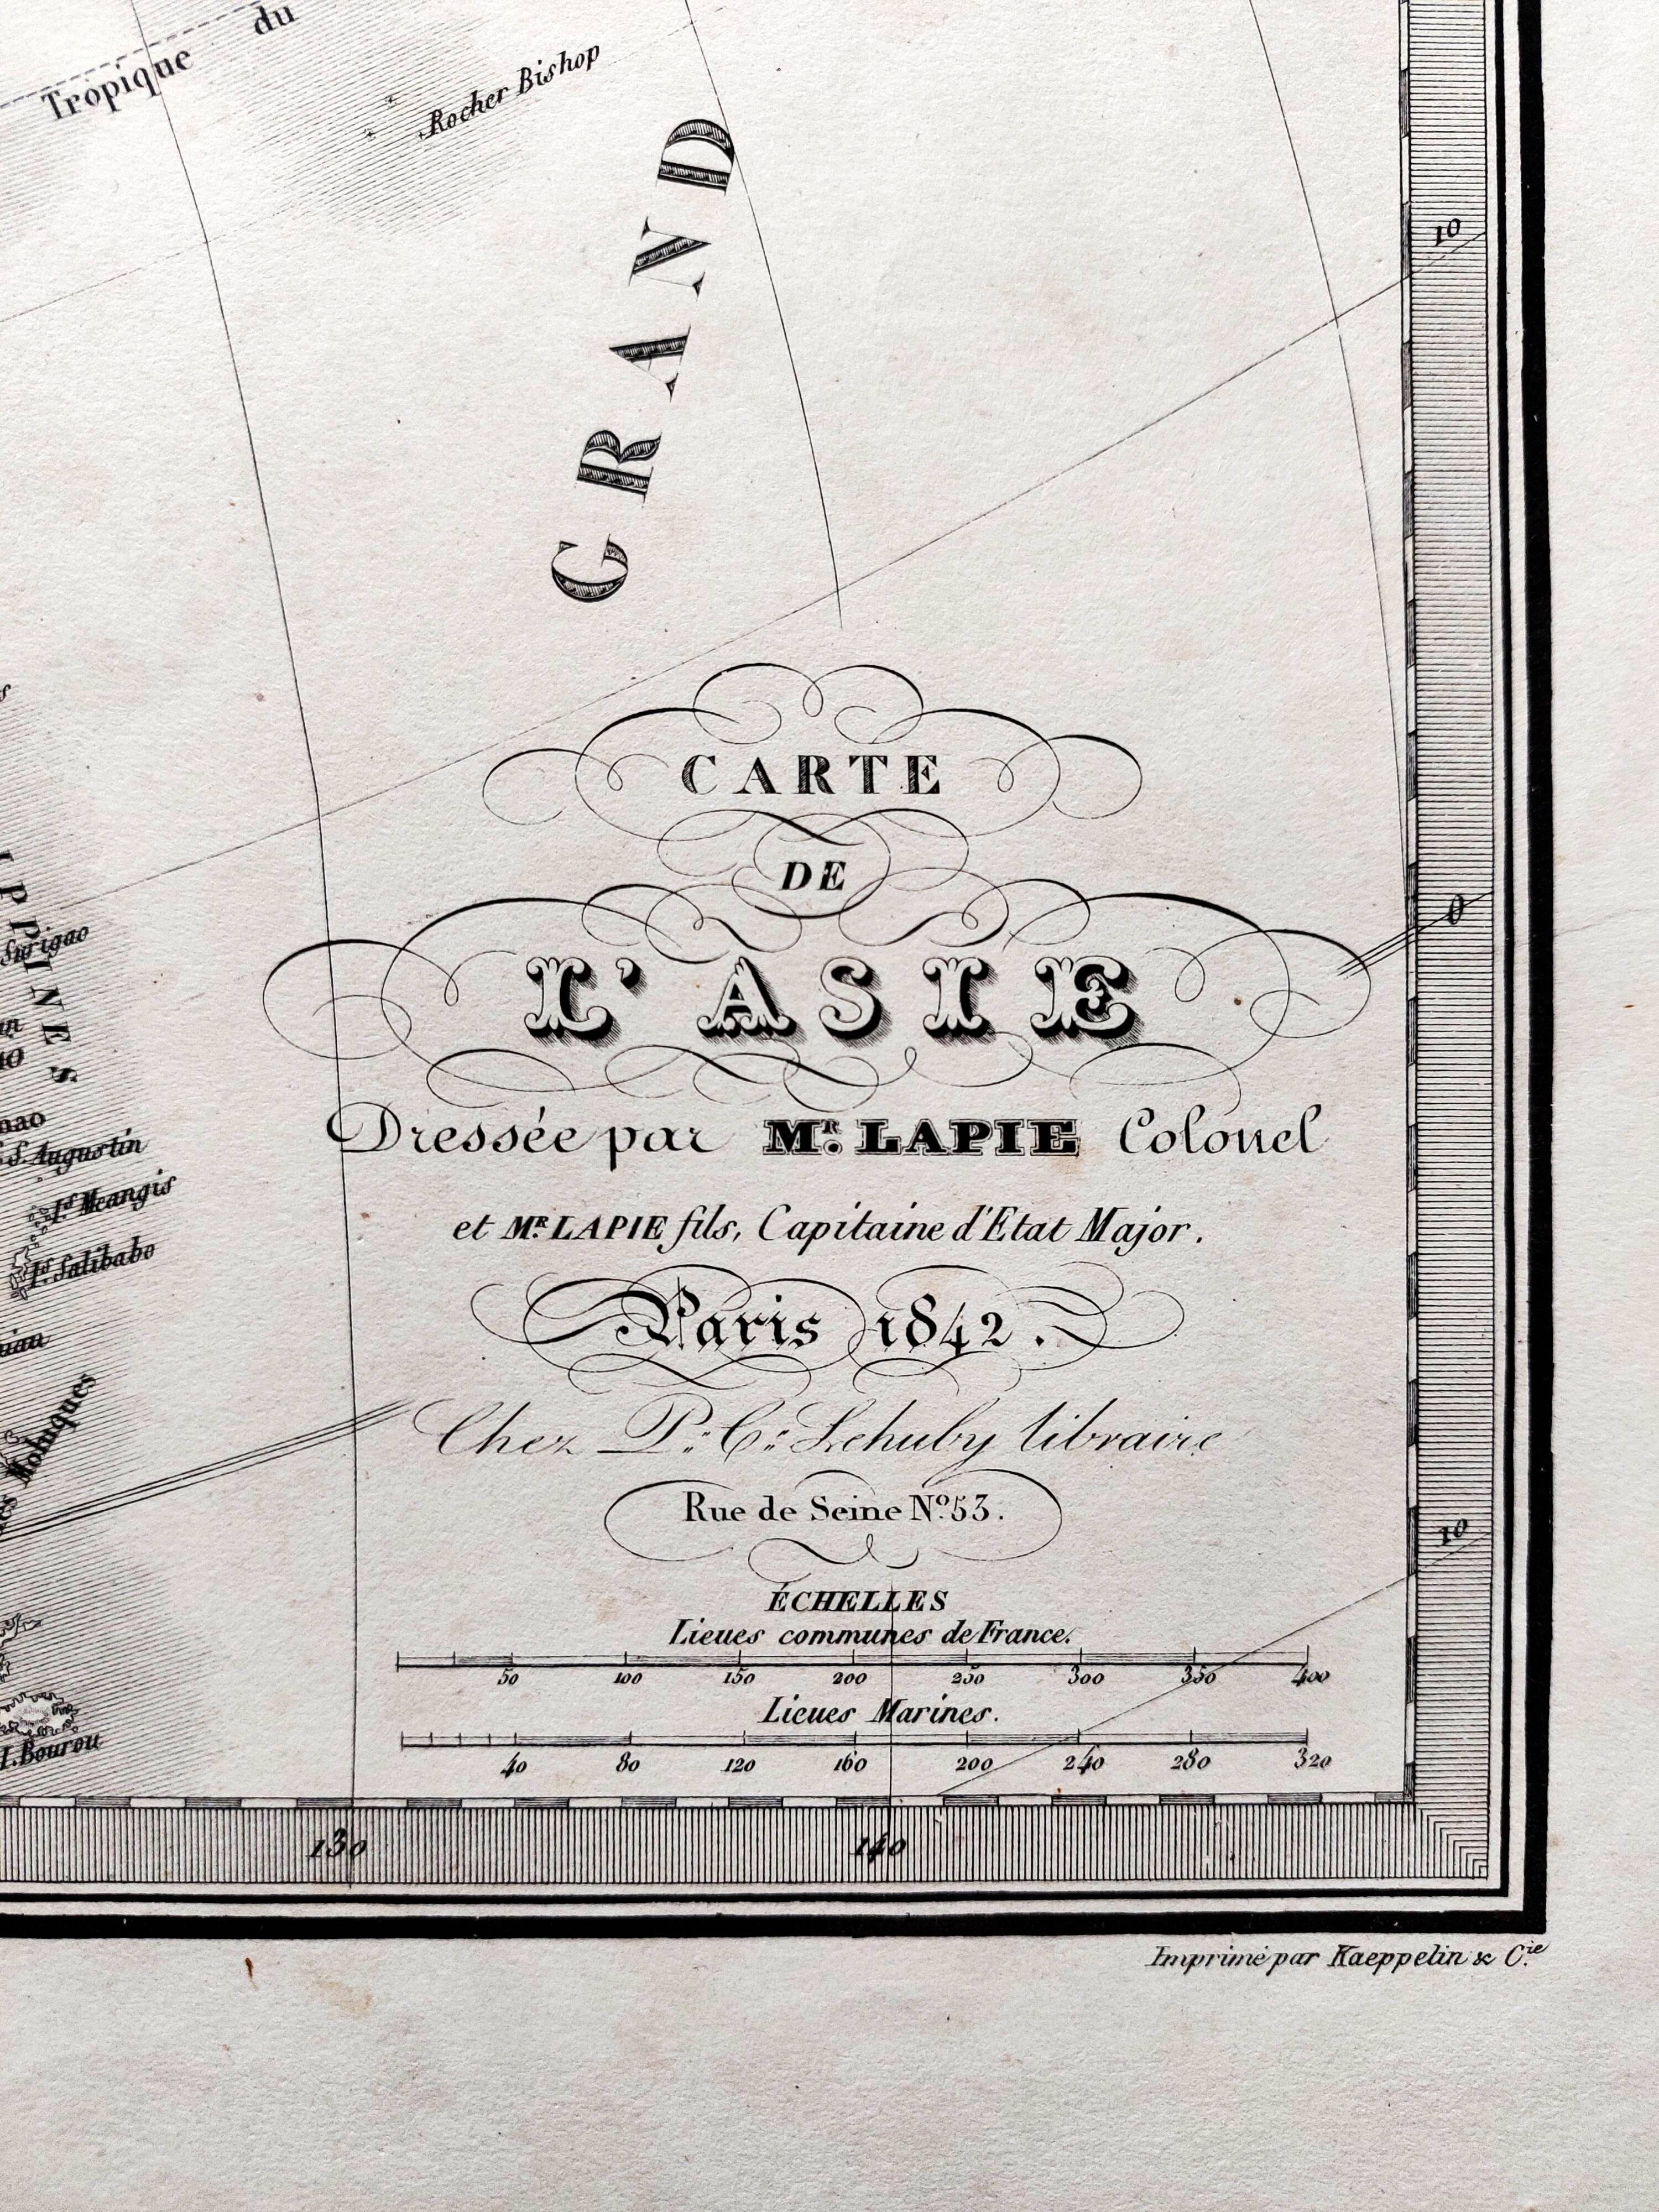 Tropique du
Rocher Bishop
GRAND
10
CARTE
DE
L'ASIE
0
Dressée par Mr. LAPIE Colonel
et MR. LAPIE fils, Capitaine d'Etat Major.
Paris 1842.
Chez P. C. Lehuby libraire
Rue de Seine No. 53.
10
ÉCHELLES
Lieues communes de France.
50 100 150 200 250 300 350 400
Lieues Marines.
40 80 120 160 200 240 280 320
IPPINES
Surigao
S. Augustin
Is. Meangis
Is. Salibabo
Moluques
I. Bourou
130 140
Imprimé par Kaeppelin & Cie.